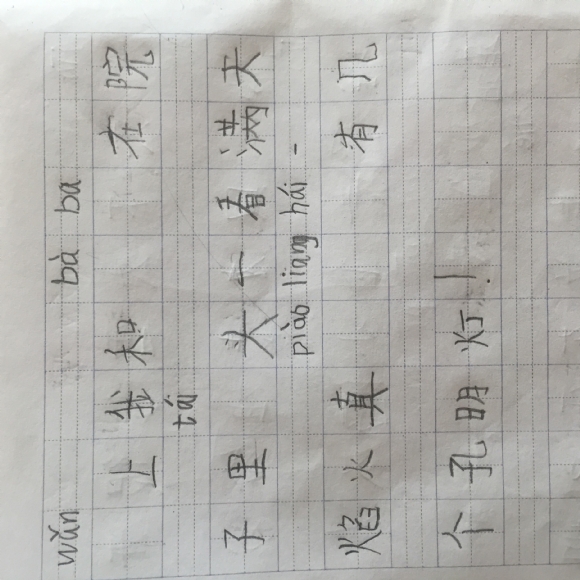 wǎn bà ba
上我和在院
tá
子里头一看满天
piào liang hái
焰火真有几
个孔明灯!